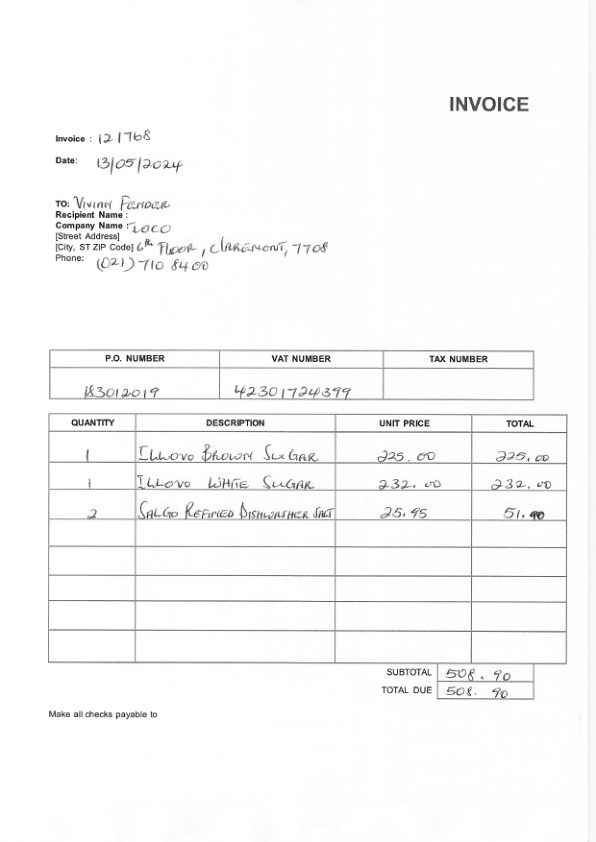 INVOICE
Invoice : 121768
Date: 13/05/2024
TO: Vivian Fender
Recipient Name :
Company Name : Loco
[Street Address]
[City, ST ZIP Code] 6th Floor, Claremont, 7708
Phone: (021) 710 8400
P.O. NUMBER VAT NUMBER TAX NUMBER
183012019 42301724399
QUANTITY DESCRIPTION UNIT PRICE TOTAL
1 Illovo Brown Sugar 225.00 225.00
1 Illovo White Sugar 232.00 232.00
2 Salgo Refined Dishwasher Salt 25.95 51.90
SUBTOTAL 508.90
TOTAL DUE 508.90
Make all checks payable to